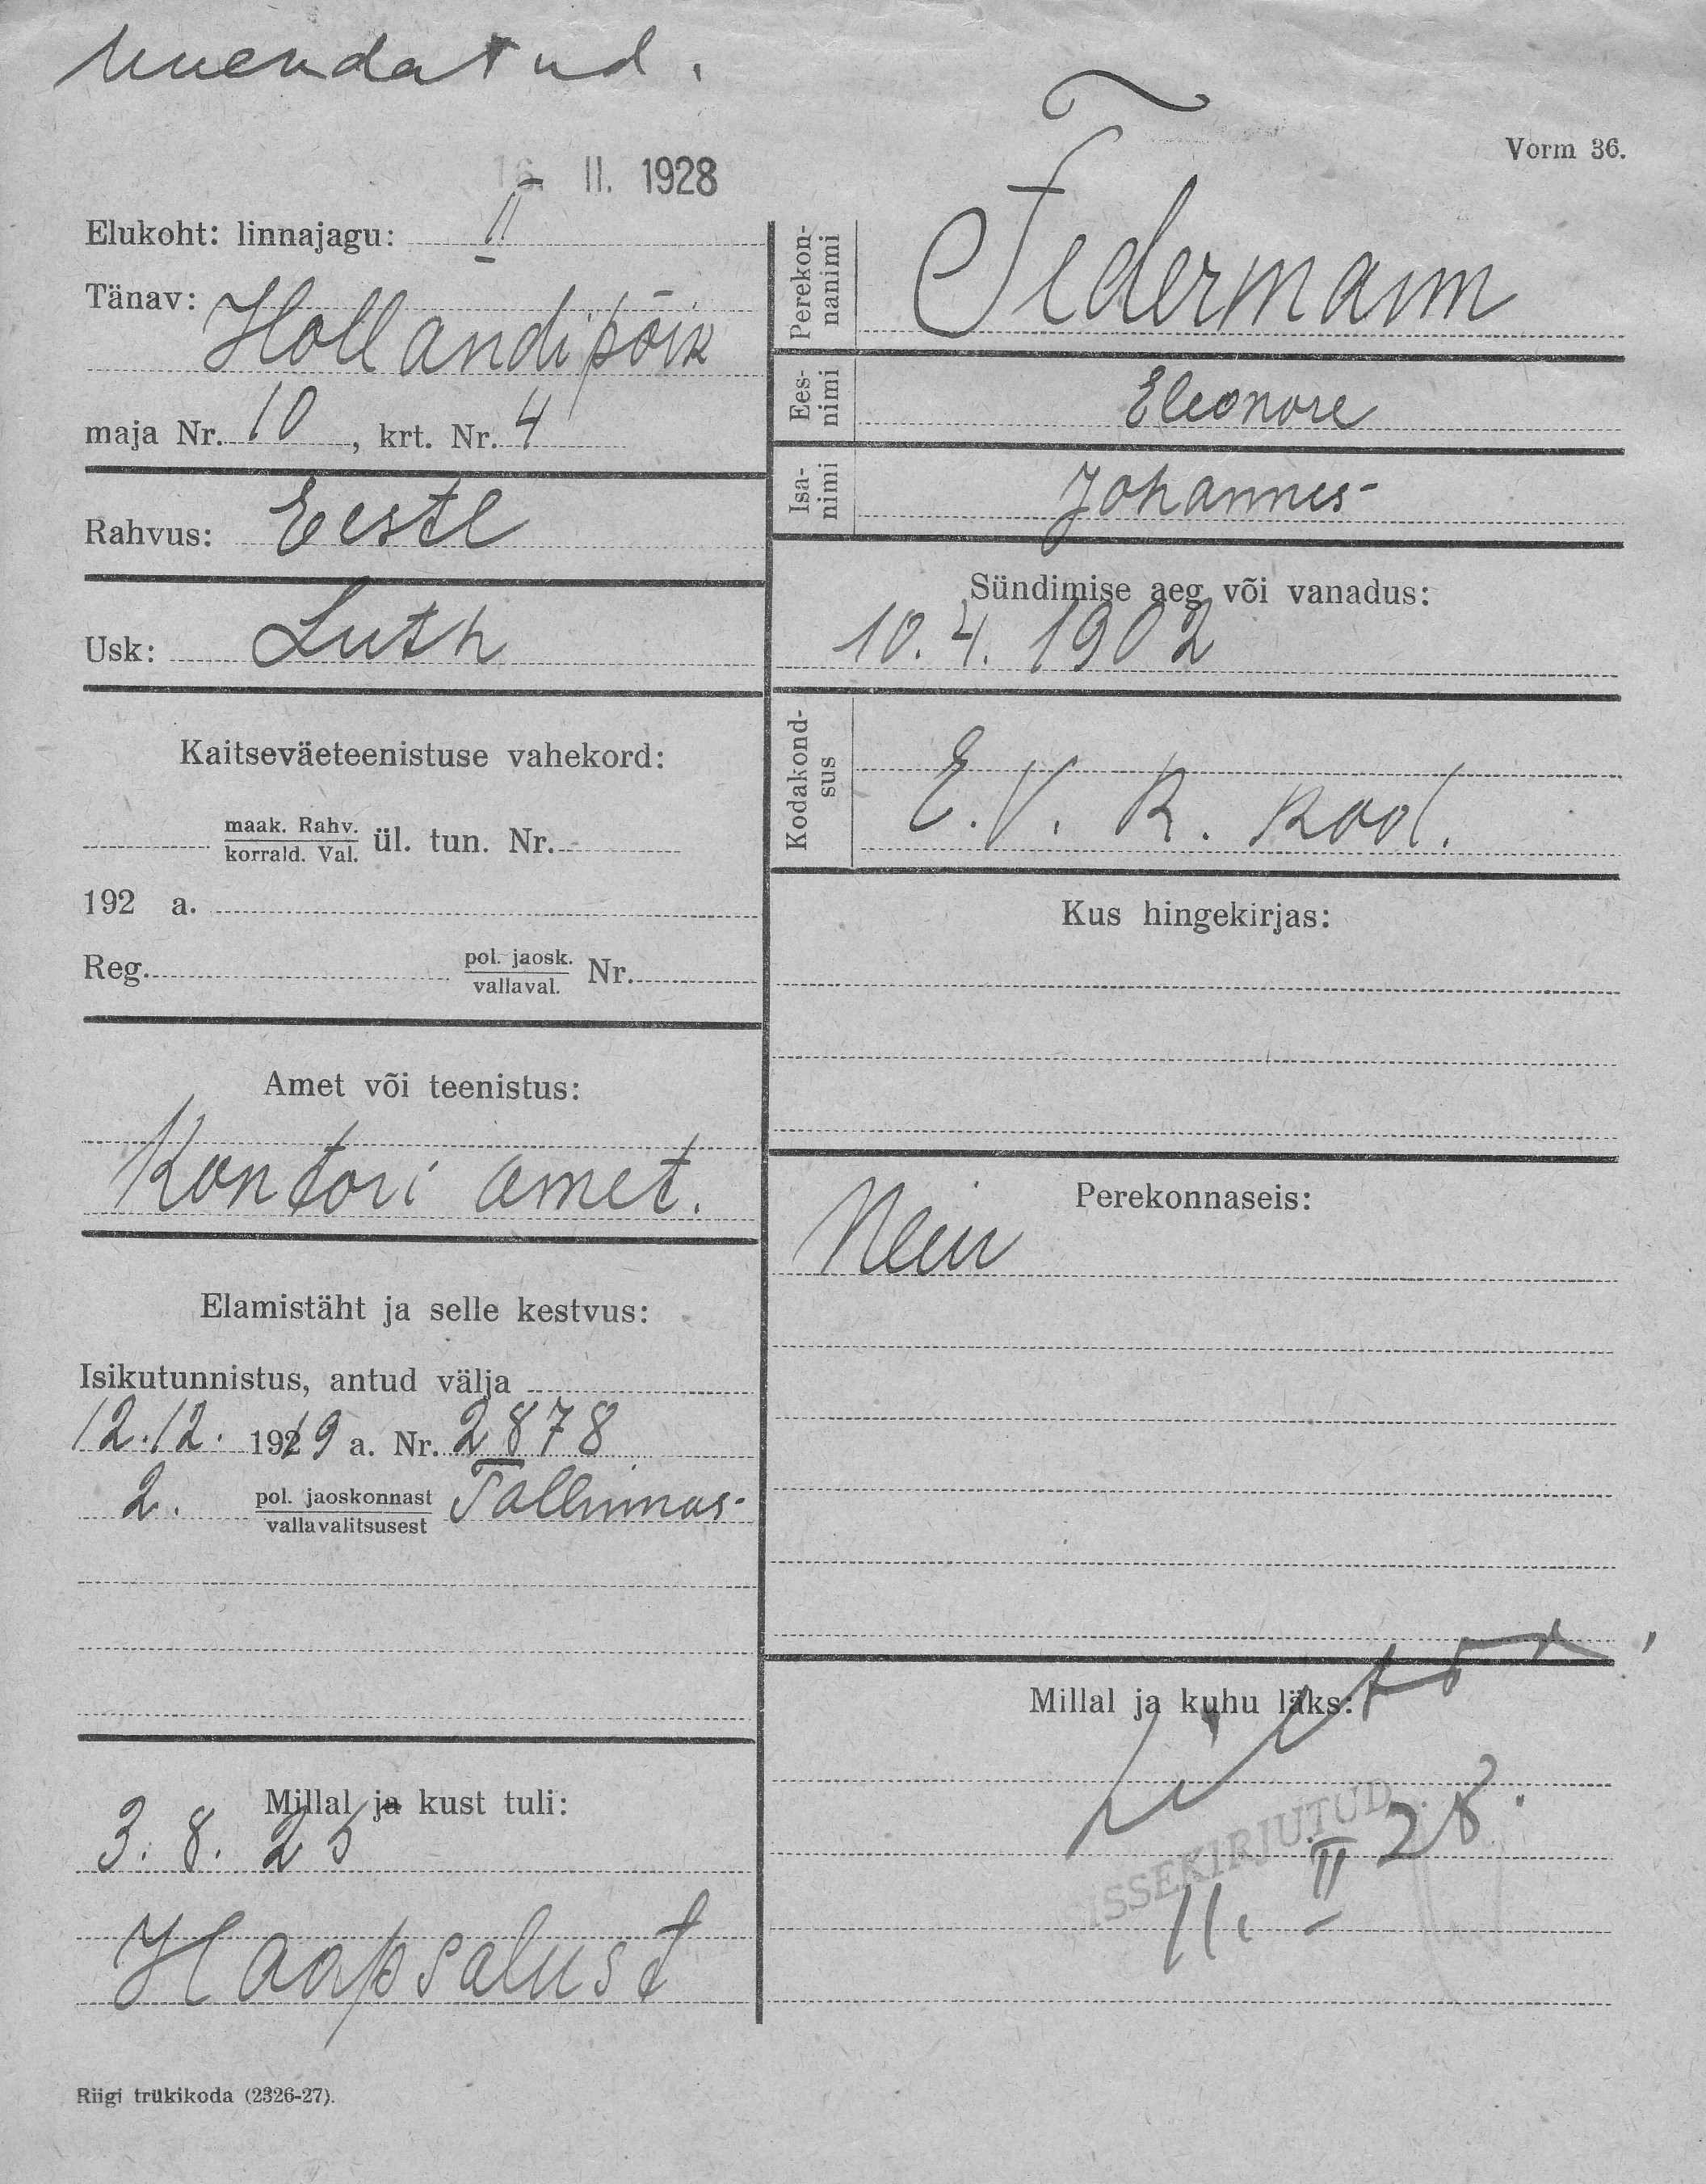 Uuendatud.
Vorm 36.
16. II. 1928
Elukoht: linnajagu: II
Tänav: Hollandi põik
maja Nr. 10, krt. Nr. 4
Rahvus: Eesti
Usk: Luth
Kaitseväeteenistuse vahekord:
maak. Rahv.
korrald. Val. ül. tun. Nr.
192 a.
Reg. pol. jaosk.
vallaval. Nr.
Amet või teenistus:
Kontori amet.
Elamistäht ja selle kestvus:
Isikutunnistus, antud välja
12.12. 1919 a. Nr. 2878
2. pol. jaoskonnast Tallinnas
vallavalitsusest
Millal ja kust tuli:
3. 8. 25
Haapsalust
Riigi trükikoda (2326-27).
Perekon-
nanimi
Federmann
Ees-
nimi
Eleonore
Isa-
nimi
Johannes
Sündimise aeg või vanadus:
10. 4. 1902
Kodakond-
sus
E. V. K. kod.
Kus hingekirjas:
Perekonnaseis:
Neiu
Millal ja kuhu läks:
SISSEKIRJUTUD
11. II 28.